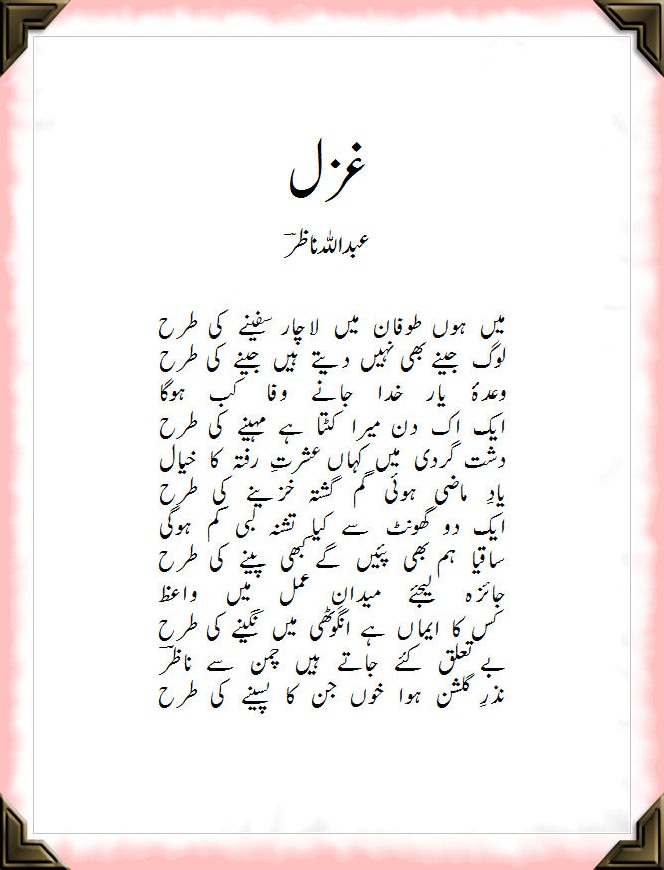 غزل
عبداللہ ناظرؔ
میں ہوں طوفان میں لاچار سفینے کی طرح
لوگ جینے بھی نہیں دیتے ہیں جینے کی طرح
وعدۂ یار خدا جانے وفا کب ہوگا
ایک اک دن میرا کٹتا ہے مہینے کی طرح
دشت گردی میں کہاں عشرتِ رفتہ کا خیال
یادِ ماضی ہوئی گم گشتہ خزینے کی طرح
ایک دو گھونٹ سے کیا تشنہ لبی کم ہوگی
ساقیا ہم بھی پئیں گے کبھی پینے کی طرح
جائزہ لیجئے میدانِ عمل میں واعظ
کس کا ایماں ہے انگوٹھی میں نگینے کی طرح
بے تعلق کئے جاتے ہیں چمن سے ناظرؔ
نذرِ گلشن ہوا خوں جن کا پسینے کی طرح